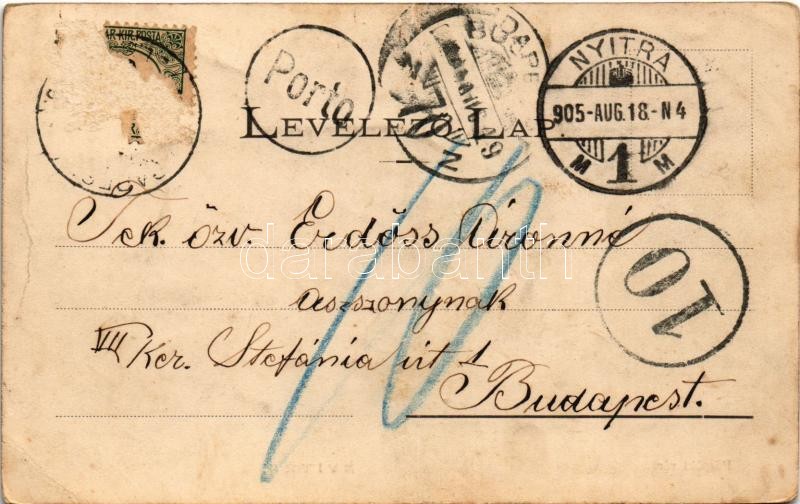 KIR. POSTA
Porto
BUDAPE
NYITRA
905-AUG.18.-N4
M 1 M
LEVELEZŐ LAP
10
Tek. özv. Erdőss Áronné
aszszonynak
VII Ker. Stefánia út 1
Budapest.
10
darabanth